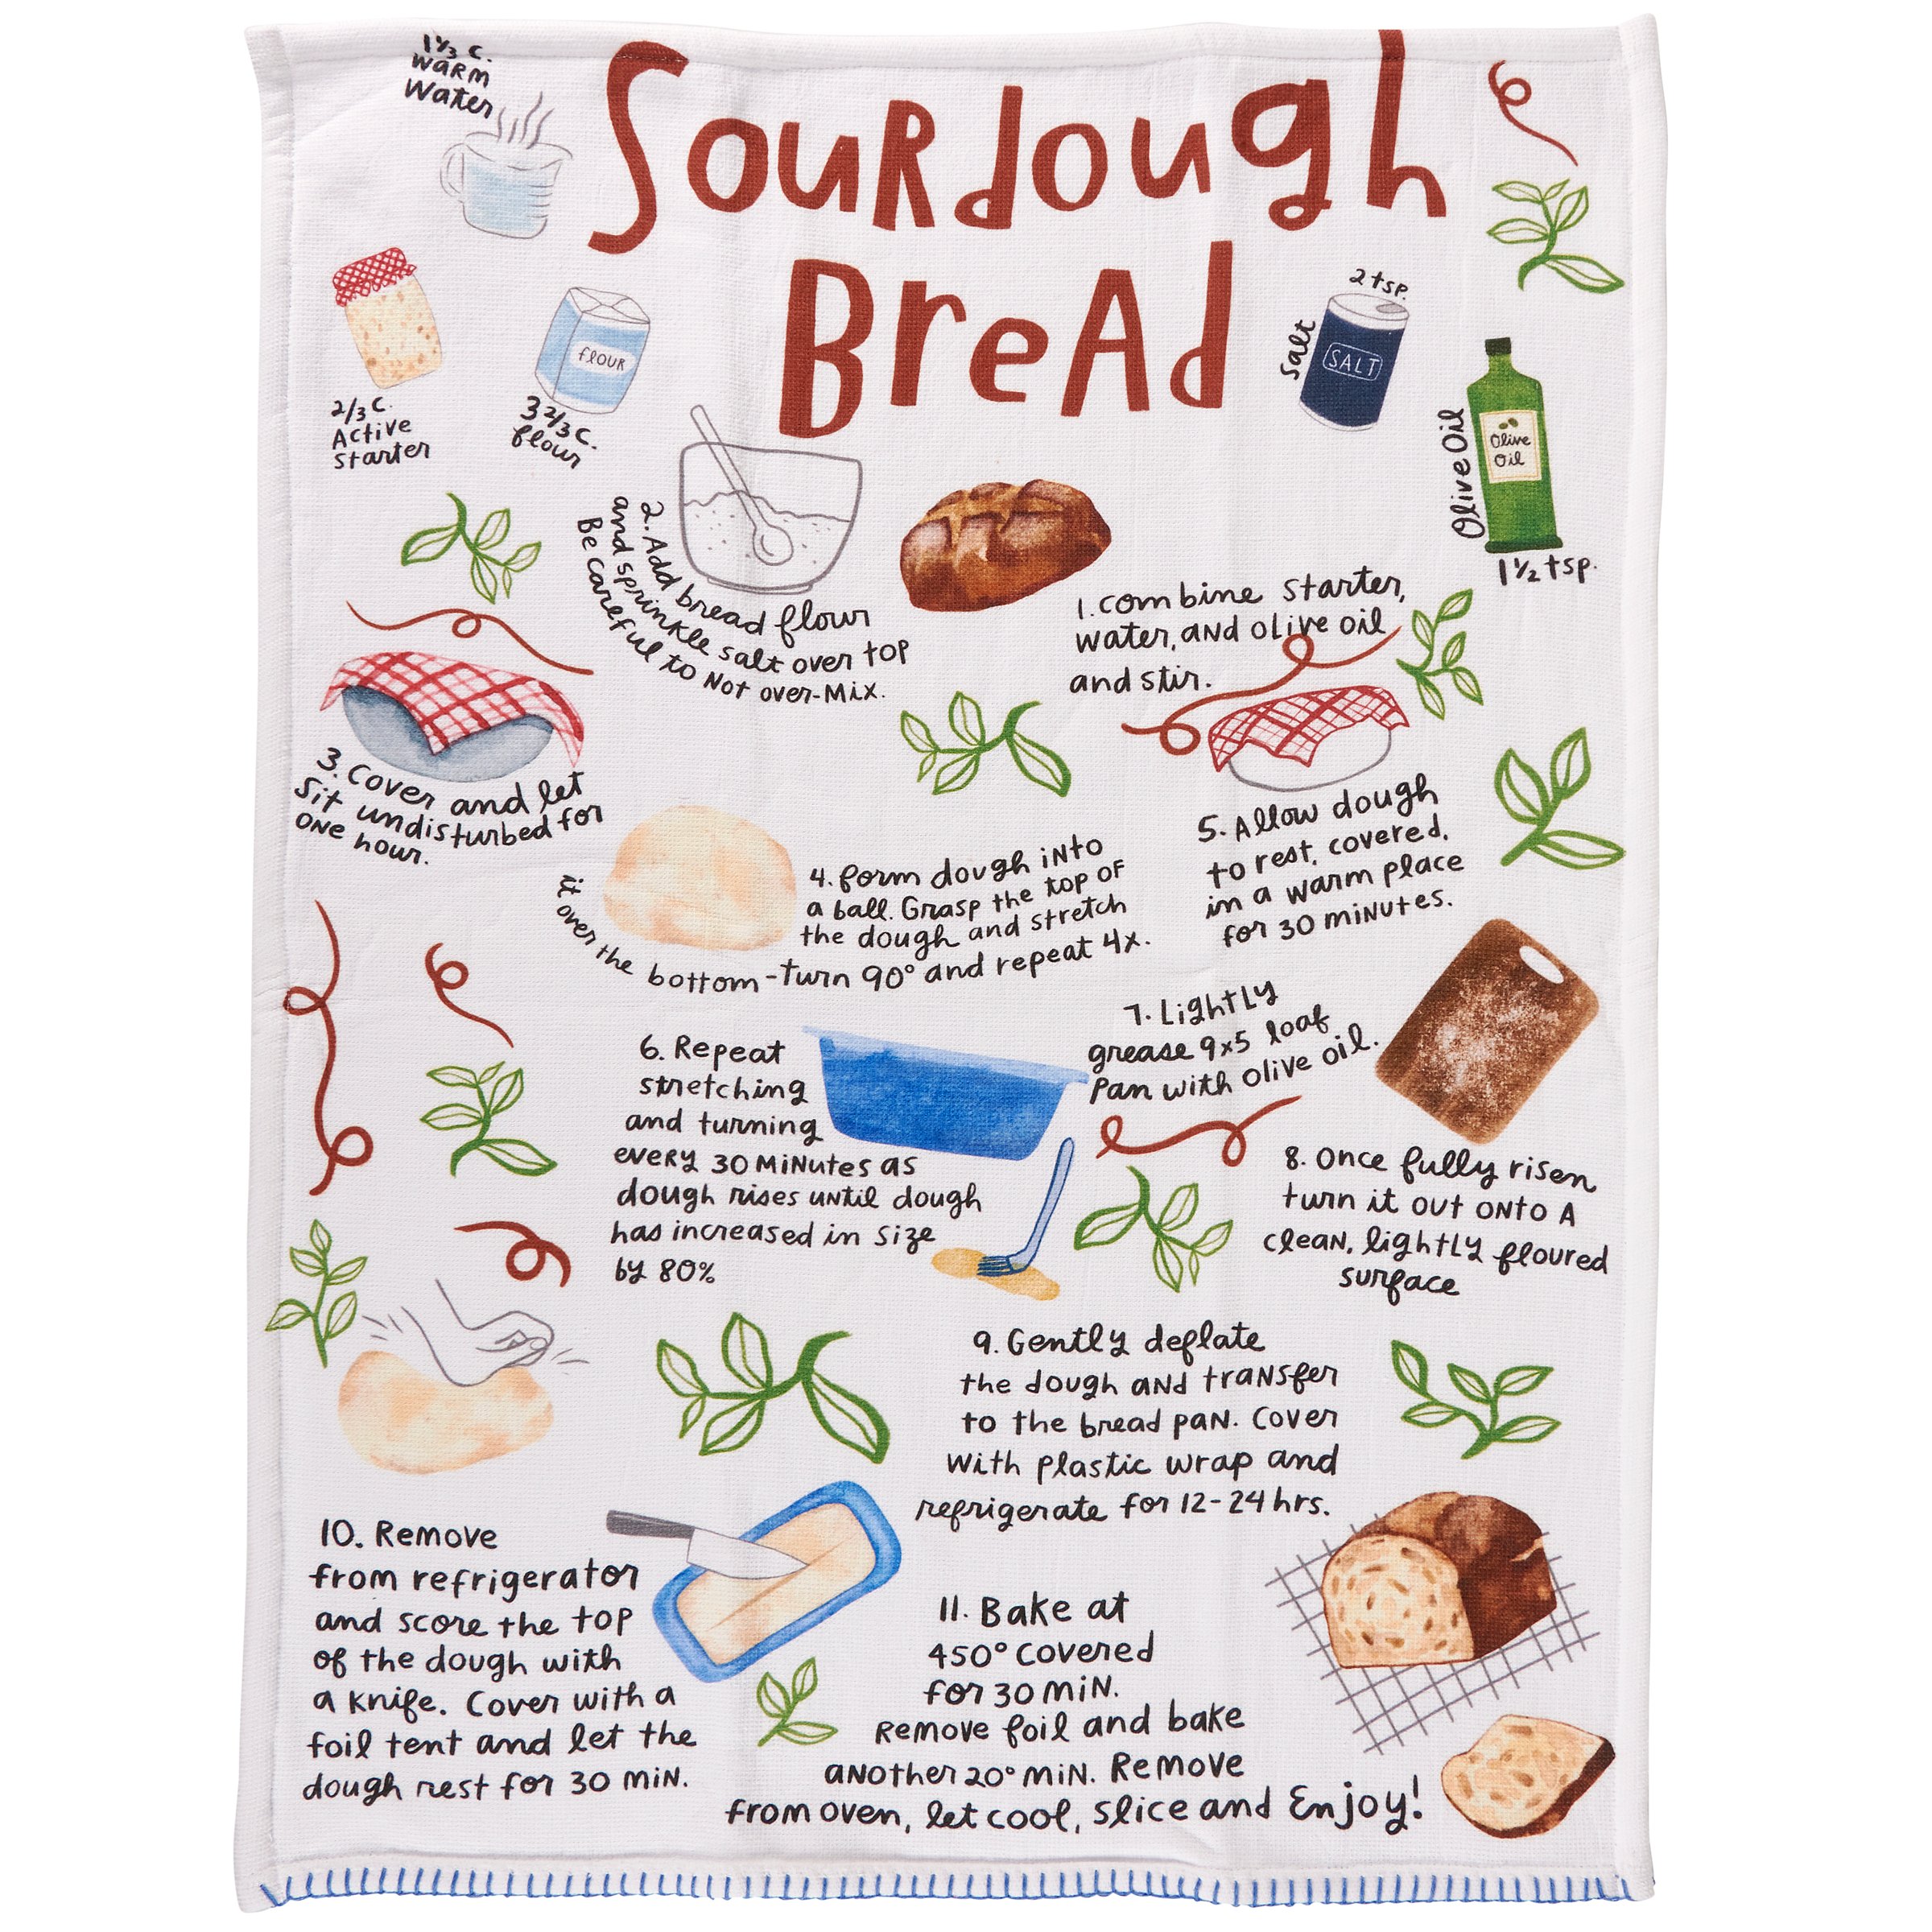 1⅓ c.
warm
water
Sourdough
Bread
2/3 c.
Active
starter
flour
3 2/3 c.
flour
2 tsp.
Salt
SALT
Olive Oil
Olive
Oil
1½ tsp.
1. Combine starter,
water, and olive oil
and stir.
2. Add bread flour
and sprinkle salt over top
Be careful to Not over-Mix.
3. Cover and let
sit undisturbed for
one hour.
4. form dough into
a ball. Grasp the top of
the dough and stretch
it over the bottom - turn 90° and repeat 4x.
5. Allow dough
to rest, covered,
in a warm place
for 30 minutes.
6. Repeat
stretching
and turning
every 30 minutes as
dough rises until dough
has increased in size
by 80%
7. Lightly
grease 9x5 loaf
pan with olive oil.
8. Once fully risen
turn it out onto a
clean, lightly floured
surface
9. Gently deflate
the dough and transfer
to the bread pan. Cover
with plastic wrap and
refrigerate for 12-24 hrs.
10. Remove
from refrigerator
and score the top
of the dough with
a knife. Cover with a
foil tent and let the
dough rest for 30 min.
11. Bake at
450° covered
for 30 min.
Remove foil and bake
another 20° min. Remove
from oven, let cool, slice and Enjoy!